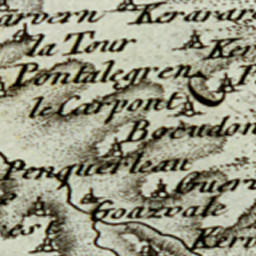 arvern Kerarar
la Tour
Ker
Pontalegren
le Carpont
Bocudon
Penquerleau
Guer
Goazvale
est
Kerv